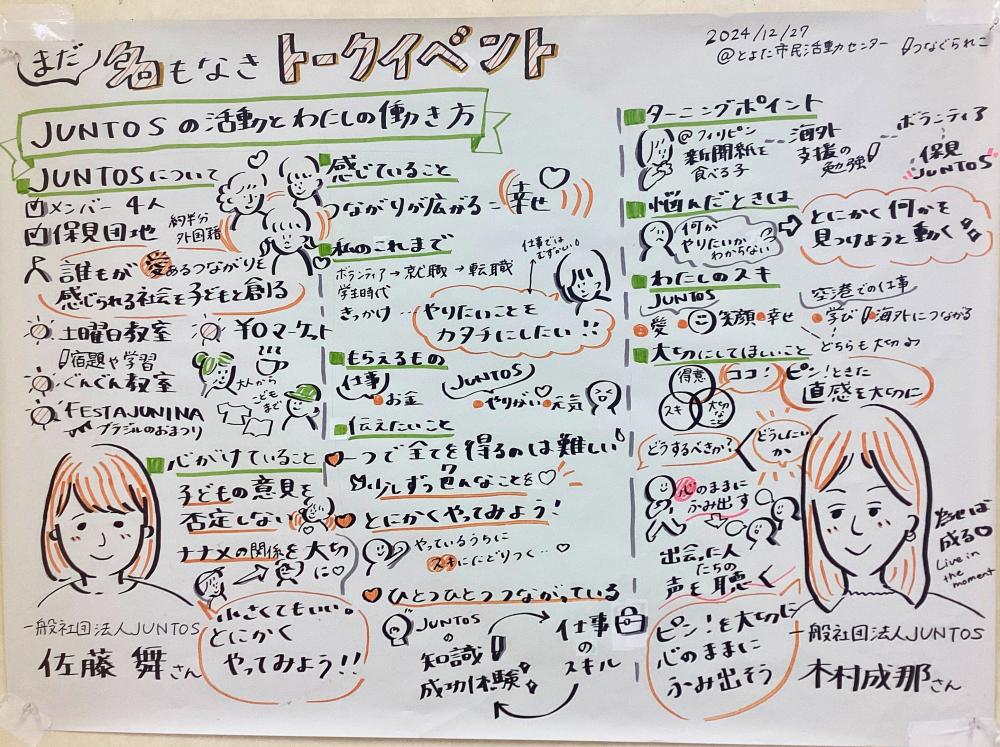 まだ名もなきトークイベント
2024/12/27
@とよた市民活動センター つなぐられこ
JUNTOSの活動とわたしの働き方
JUNTOSについて
メンバー 4人
保見団地
約半分
外国籍
誰もが愛あるつながりを
感じられる社会を子どもと創る
土曜日教室
宿題や学習
¥0マーケット
ぐんぐん教室
大人から
こども
まで
FESTAJUNINA
ブラジルのおまつり
心がけていること
子どもの意見を
否定しない
ナナメの関係を大切
に♡
小さくてもいい。
とにかく
やってみよう!!
一般社団法人JUNTOS
佐藤 舞さん
感じていること
つながりが広がる=幸せ
私のこれまで
仕事では
むずかしい
ボランティア→就職→転職
学生時代
きっかけ…
やりたいことを
カタチにしたい!!
もらえるもの
仕事
お金
JUNTOS
やりがい 元気
伝えたいこと
一つで全てを得るのは難しい
少しずつ
とにかくやってみよう!
やっているうちに
スキにたどりつく…♡
ひとつひとつつながっている
JUNTOS
の
知識
成功体験
仕事
の
スキル
ターニングポイント
@フィリピン
新聞紙を
食べる子
海外
支援の
勉強
ボランティア
保見
JUNTOS
悩んだときは
何が
やりたいか
わからない
とにかく何かを
見つけようと動く
わたしのスキ
JUNTOS
愛 笑顔 幸せ
空港での仕事
学び 海外につながる
どちらも大切
大切にしてほしいこと
得意
スキ
大切な
こと
ココ!
ピン!ときた
直感を大切に
どうするべきか?
どうしたい
か
心のままに
ふみ出す
出会った人
たちの
声を聴く
ピン!を大切に
心のままに
ふみ出そう
為せば
成る
Live in
the
moment
一般社団法人JUNTOS
木村成那さん